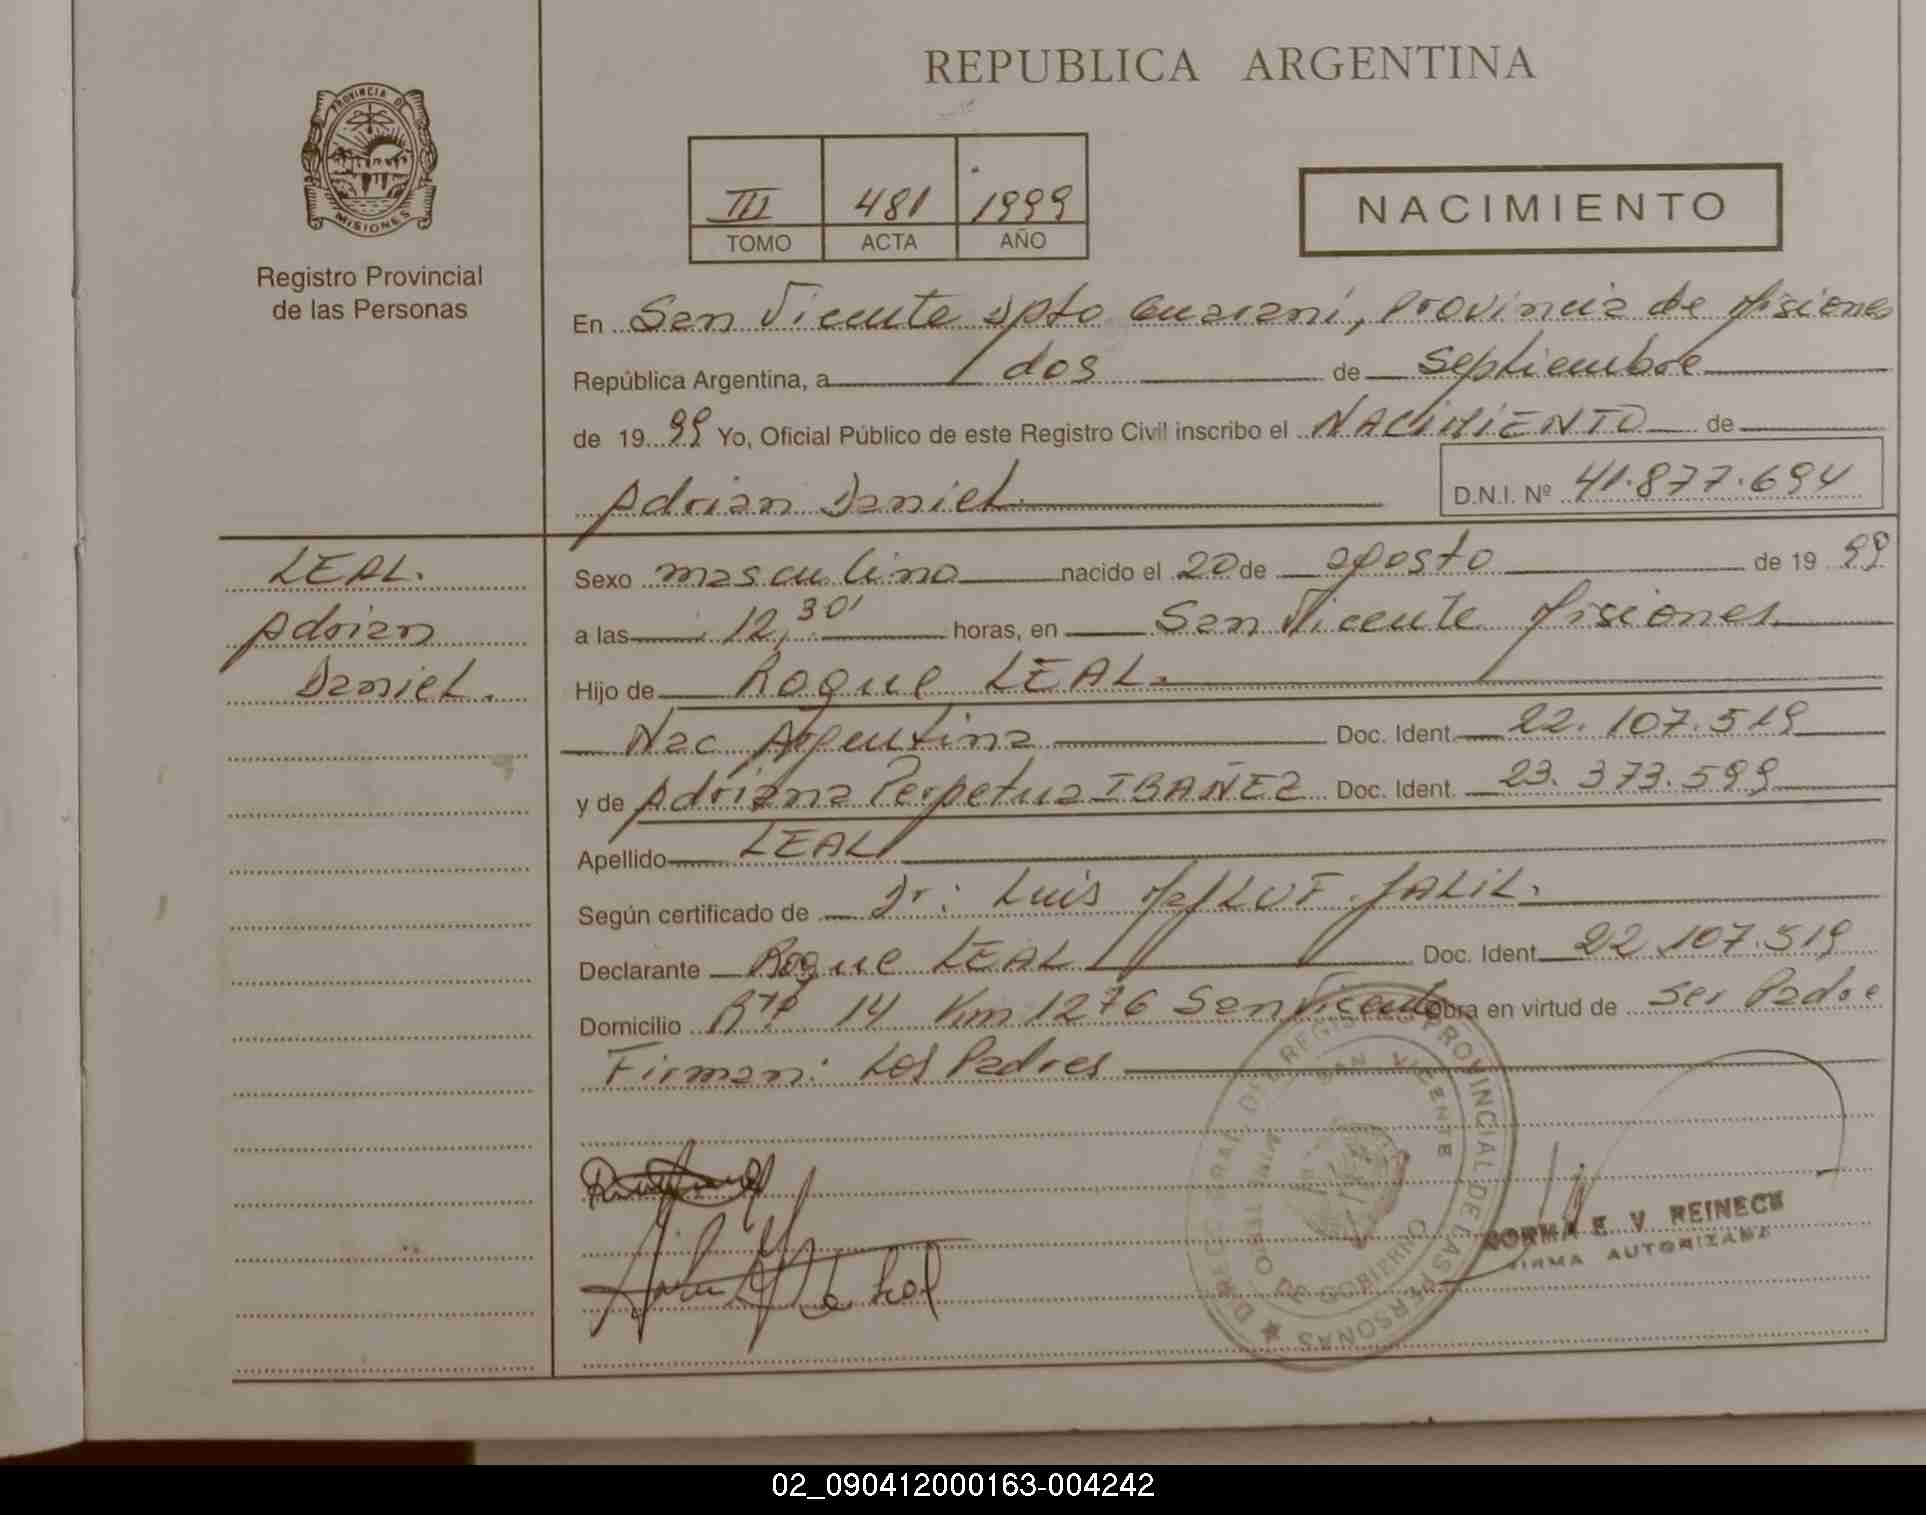 REPUBLICA ARGENTINA
PROVINCIA DE
MISIONES
Registro Provincial
de las Personas
III 481 1999
TOMO ACTA AÑO
NACIMIENTO
En San Vicente dpto Guaraní, Provincia de Misiones
República Argentina, a dos de Septiembre
de 1999 Yo, Oficial Público de este Registro Civil inscribo el NACIMIENTO de
Adrian Daniel D.N.I. Nº 41.877.694
LEAL.
Adrian
Daniel.
Sexo masculino nacido el 20 de agosto de 1999
a las 12,30' horas, en San Vicente Misiones
Hijo de Roque LEAL.
Nac Argentina Doc. Ident. 22.107.519
y de Adriana Perpetua IBAÑEZ Doc. Ident. 23.373.599
Apellido LEAL
Según certificado de Dr: Luis JALIL.
Declarante Roque LEAL Doc. Ident. 22.107.519
Domicilio Rta 14 Km 1276 San Vicente Obra en virtud de ser Padre
Firman: Los Padres
REGISTRO PROVINCIAL DE LAS PERSONAS
SAN VICENTE
DE GOBIERNO
NORMA E. V. REINECK
FIRMA AUTORIZADA
02_090412000163-004242